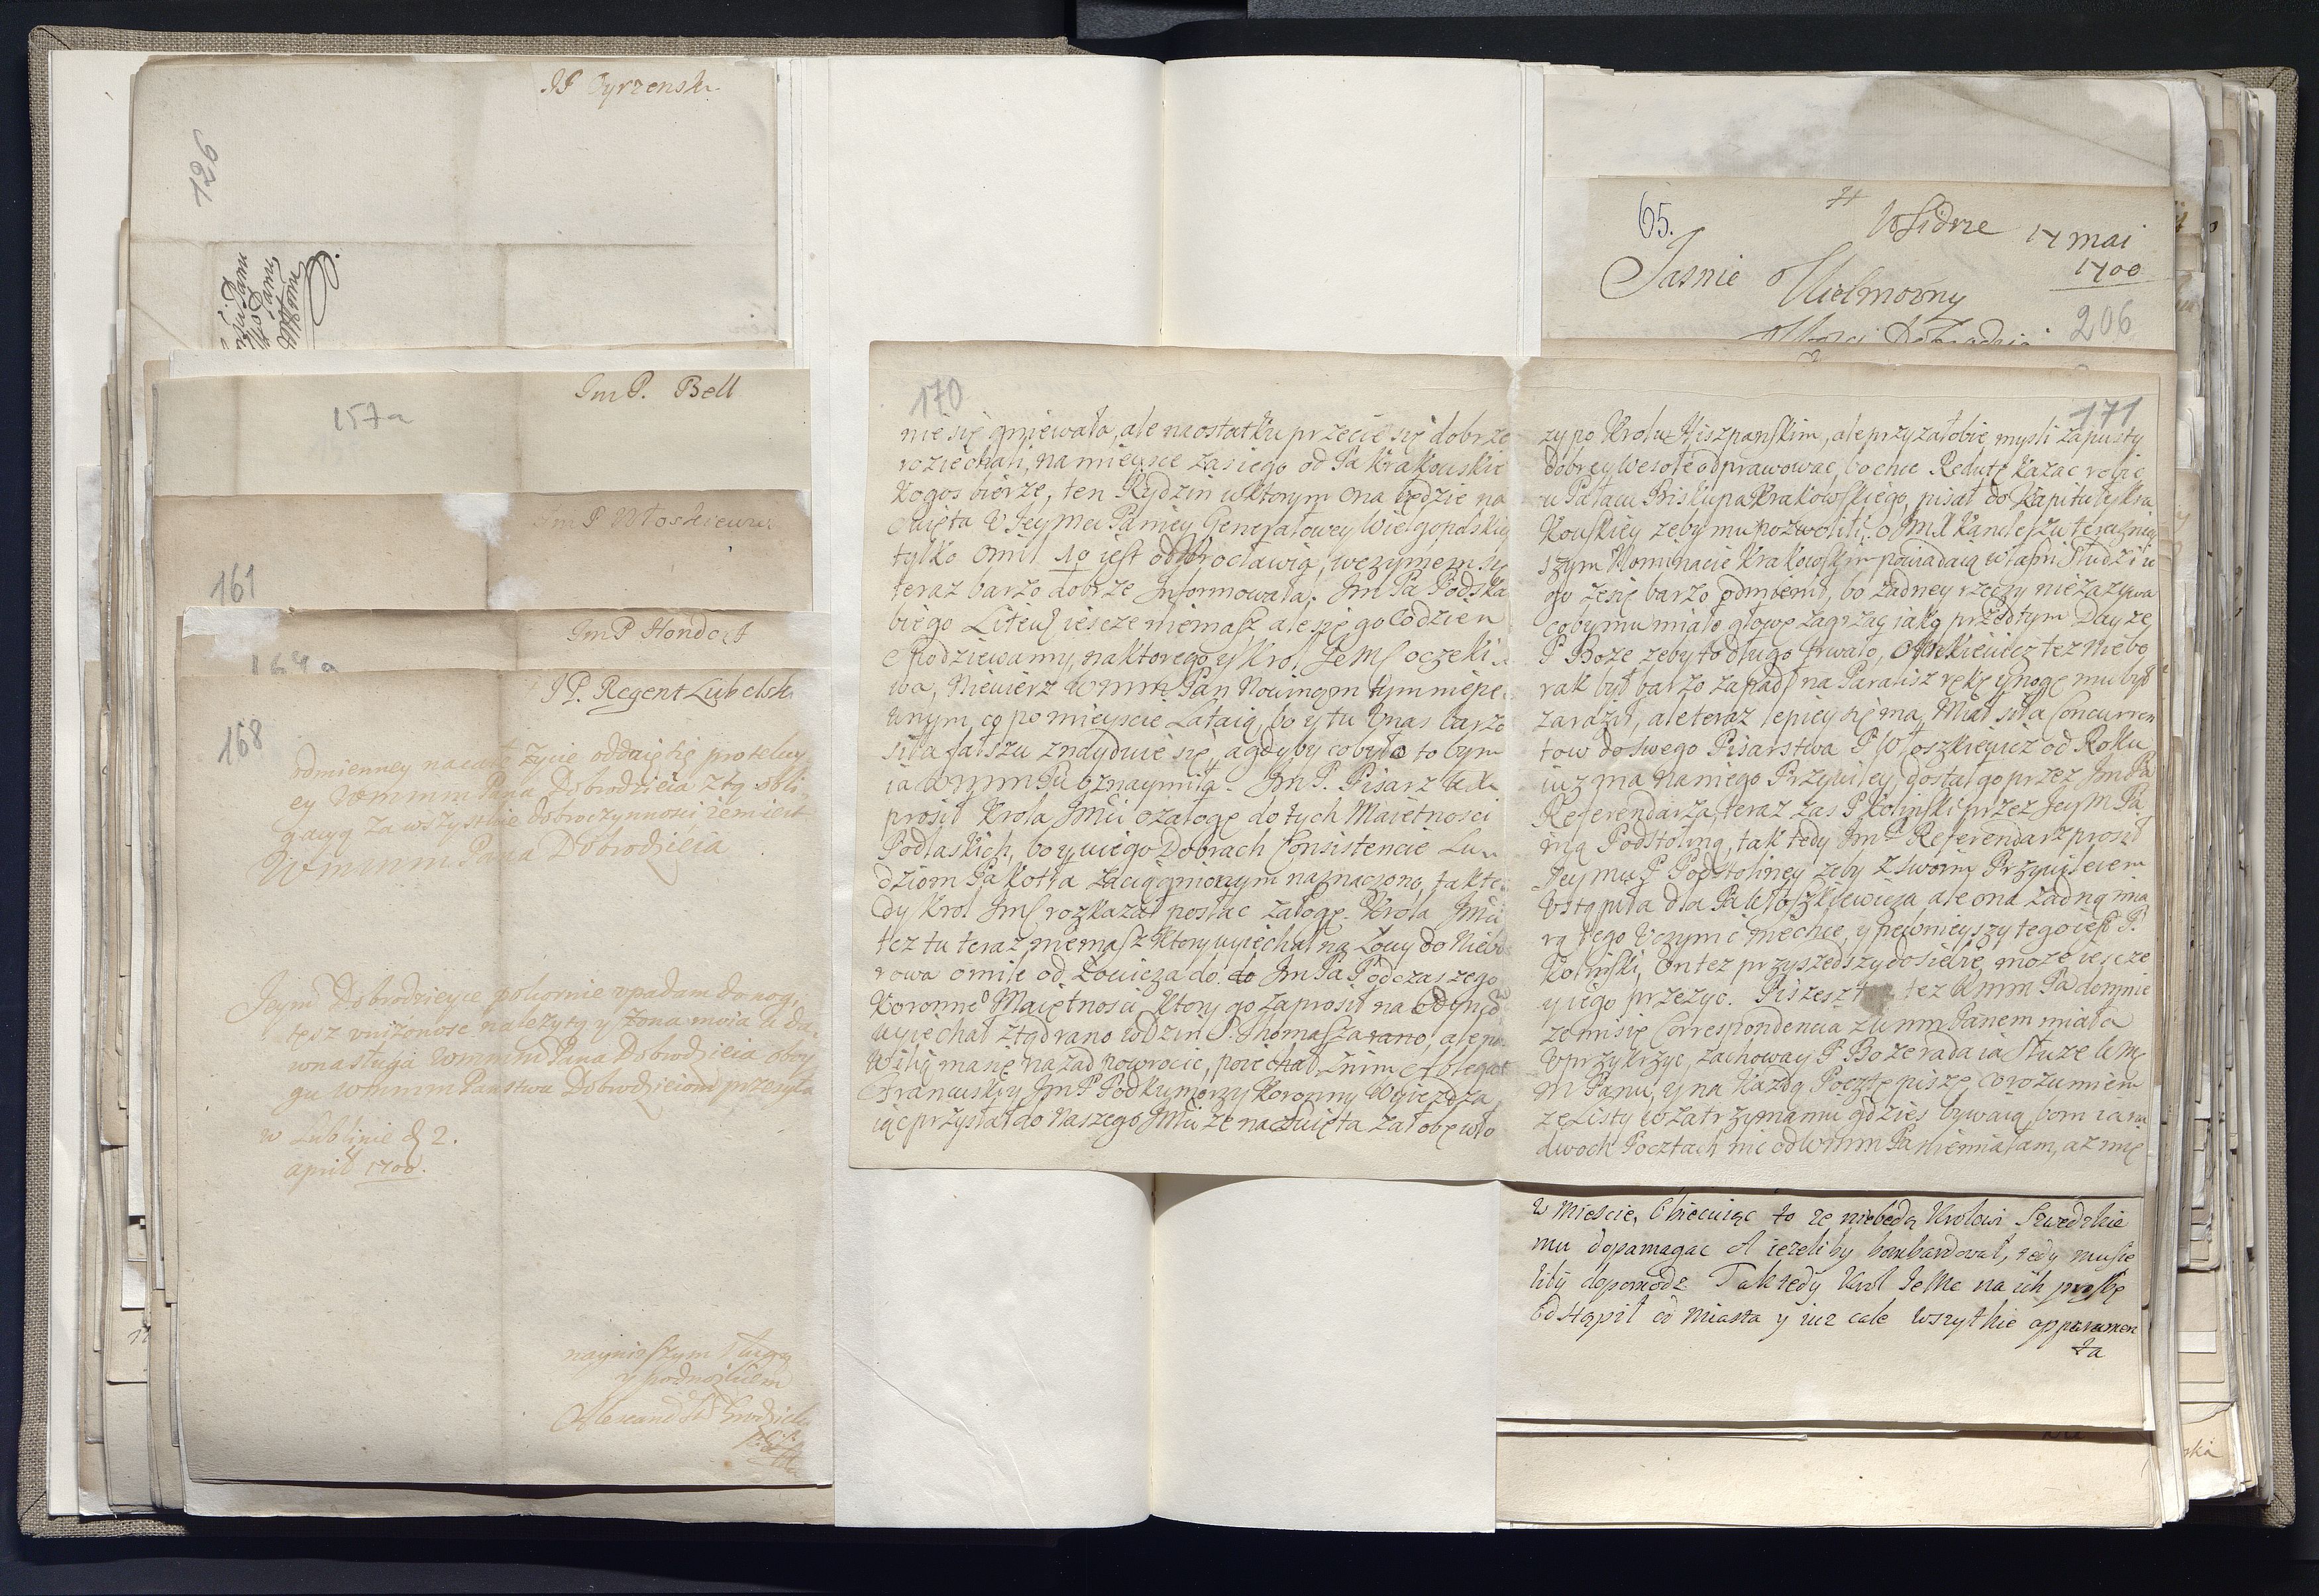 JP Cyrzenski
126
Im P. Bell
157a
Im P Włoszkiewicz
161
Im P Hondorf
164a
JP. Regent Lubelski
168
odmienney na całe życie oddaię się protekcy
ey Wmmm Pana Dobrodzieia z tą obli
gacyą za wszystkie dobroczynności żem iest
Wmmm Pana Dobrodzieia
Jeym Dobrodzieyce pokornie vpadam do nog,
tesz vniżonosc należytą y żona moia
wna sługa Wmmm Pana Dobrodzieia oboy
gu Wmmm Państwu Dobrodzieiom przesyła
w Lublinie d 2.
april 1700.
nayniższym sługą
y podnożkiem
170
nie się gniewała, ale na ostatku przecie się dobrze
roziechali, na mieysce zas iego od Pa Krakowskie
kogos bierze, ten Rydzin w ktorym ona będzie na
Swięta V Jeymci Paniey Generałowey Wielgopolskiey
tylko o mil 10 iest od Wrocławia, w czymem się
teraz barzo dobrze Informowała. Jm Pa Podska
biego Litewſ iescze niemasz, ale się go codzien
Spodziewamy, na ktorego y Krol JeMſ oczeki
wa, Niewierz Wmm Pan Nowinom tym niepe
wnym, co po mieyscie Lataią, bo y tu Vnas barzo
siła fałszu znayduie się, a gdyby co było to bym
ia Wmm Pu oznaymiła. Jm P. Pisarz
prosił Krola JMci o załogę do tych Maiętnosci
Podlaskich, bo y w iego Dobrach Consistencie Lu
dziom Pa Kotła zaciągnionym naznaczono, tak te
dy Krol Jmſ rozkazał posłac załogę. Krola JMci
tez tu teraz niemasz Ktory wyiechał na Łowy do Niebo
rowa o mile od Łowicza do do Jm Pa Podczaszego
Koronne Maiętnosci, Ktory go zaprosił na
wyiechał ztąd rano w dzien S. Thomasza rano, ale po
Wilią ma się nazad powrocic, poiechał z nim y Ablegat
Francuski y Jm P Podkumorzy Koronny Wyiezdza
iąc przysłał do naszego JMci ze na Swięta załobę wło
65.
#
W Sidrze 17 mai
1700
Jasnie Wielmozny
Mosci Dobrodzieiu
206
171
zy po Krolu Hiszpanskim, ale przy załobie mysli zapusty
dobrey wesołe odprawowac, bo chce Redutę kazac robic
w Pałacu Biskupa Krakowskiego, pisał do Kapituły Kra
kowskiey zeby mu pozwolili. o Jm X Kanclerzu terazniey
szym Nominacie Krakowskim powiadaią własni słudzi ie
go ze się barzo odmienił, bo zadney rzeczy nie zazywa
coby mu miało głowę zagrzac iako przedtym Day ze
P Boze zeby to długo trwało, Oskiewicz tez niebo
rak był barzo zapadł na Paraliz rękę y nogę mu był
zaraził, ale teraz lepiey się ma, Miał siła Concurren
tow do swego Pisarstwa P Włoszkiewicz od Roku
iuz ma na niego Przywiley, dostał go przez Jm Pa
Referendarza, teraz zas P Kotinski przez Jeym Pa
nią Podstolinę, tak tedy Jm P Referendarz prosił
Jeymci P Podstoliney zeby z swoim Przywileiem
Vstąpiła dla Pa Włoszkiewicza ale ona zadną mia
rą tego Vczynic niechce, y pewnieyszy tego iest P.
Kotinski, On tez przyszedszy do siebie, moze iescze
y iego przezyc. Piszesz tez Wmm Pa do mnie
ze mi się Correspondencia z Wmm Panem miała
Vprzykrzyc, zachoway P Boze rada ia słuze Wm
m Panu, y na kazdą Pocztę piszę, co rozumiem
ze Listy w zatrzymaniu gdzies bywaią, bom ia na
dwoch Pocztach nic od Wmm Pa niemiałam, az mię
w Miescie, Obiecuiąc to ze niebedą Krolowi Szwedzkie
mu dopamagac A iezeliby bombardował, tedy musie
liby dopomodz Tak tedy Krol JeMc na ich prosbę
odstąpił od Miasta y iuz cale wszytkie apparamen
ta